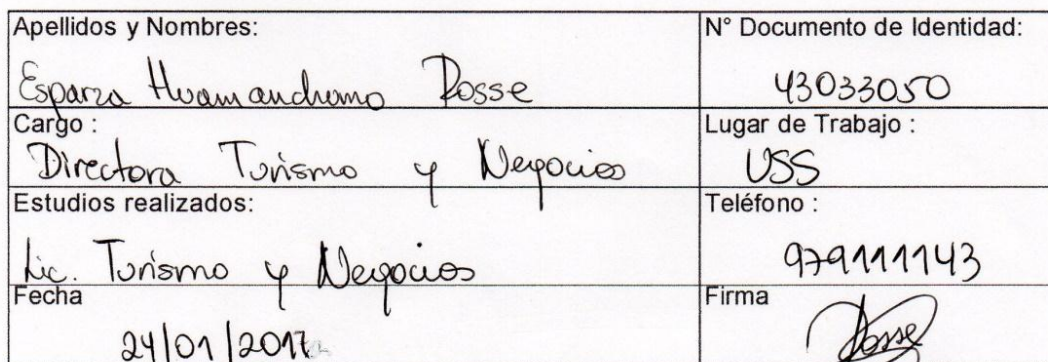 Apellidos y Nombres:
Esparza Huamanchumo Rosse
N° Documento de Identidad:
43033050
Cargo :
Directora Turismo y Negocios
Lugar de Trabajo :
USS
Estudios realizados:
Lic. Turismo y Negocios
Teléfono :
979111143
Fecha
24/01/2017
Firma
Rosse